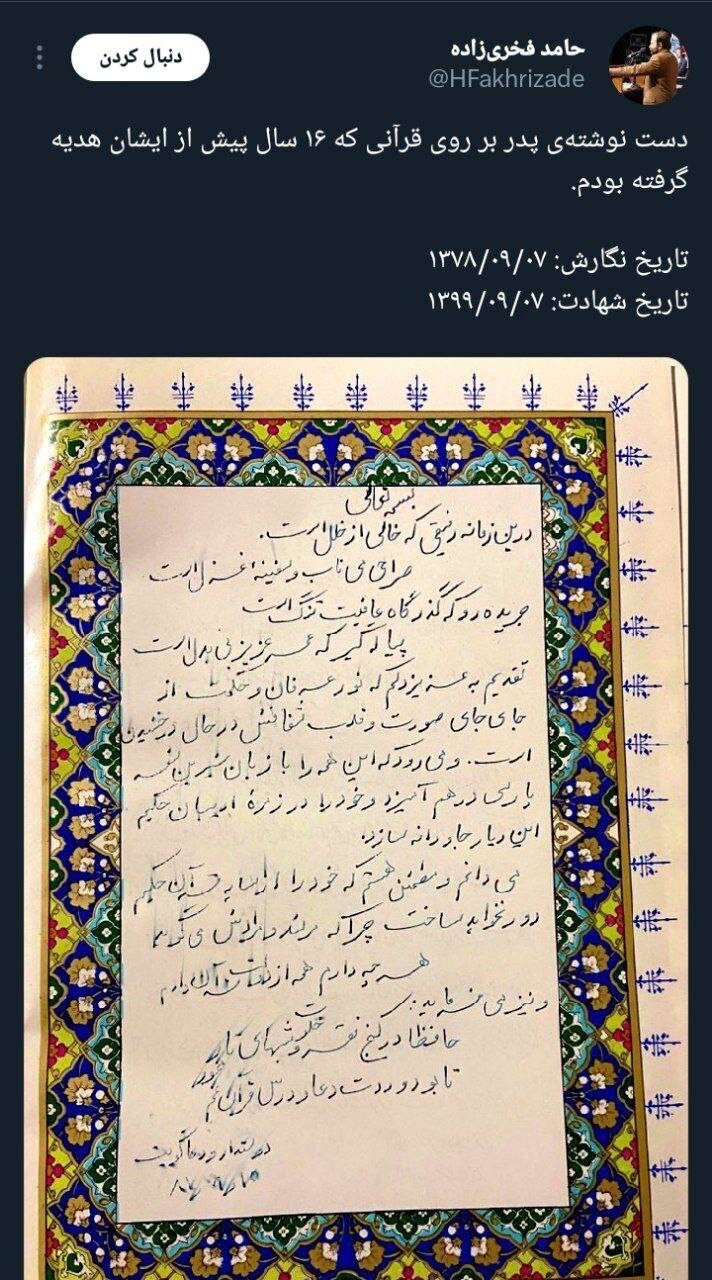 حامد فخری‌زاده
@HFakhrizade
دنبال کردن
دست نوشته‌ی پدر بر روی قرآنی که ۱۶ سال پیش از ایشان هدیه
گرفته بودم.
تاریخ نگارش: ۱۳۷۸/۰۹/۰۷
تاریخ شهادت: ۱۳۹۹/۰۹/۰۷
بسمه تعالی
درین زمانه رفیقی که خالی از خلل است.
صراحی می ناب و سفینه غزل است
جریده رو که گذرگاه عافیت تنگ است
پیاله گیر که عمر عزیز بی بدل است
تقدیم به عزیزدلم که نور عرفان و حکمت از
جای جای صورت و قلب شفافش در حال درخشیدن
است. و می رود که این همه را با زبان شیرین
پارسی در هم آمیزد و خود را در زمرهٔ ادیبان حکیم
این دیار جاودانه سازد.
می دانم و مطمئن هستم که خود را از سایه قرآن حکیم
دور نخواهد ساخت چرا که
هر چه دارم همه از دولت قرآن دارم
و نیز می فرماید:
حافظا در کنج فقر و خلوت شبهای تار
تا بود وردت دعا و درس قرآن غم مخور
دوستدار و دعاگویت